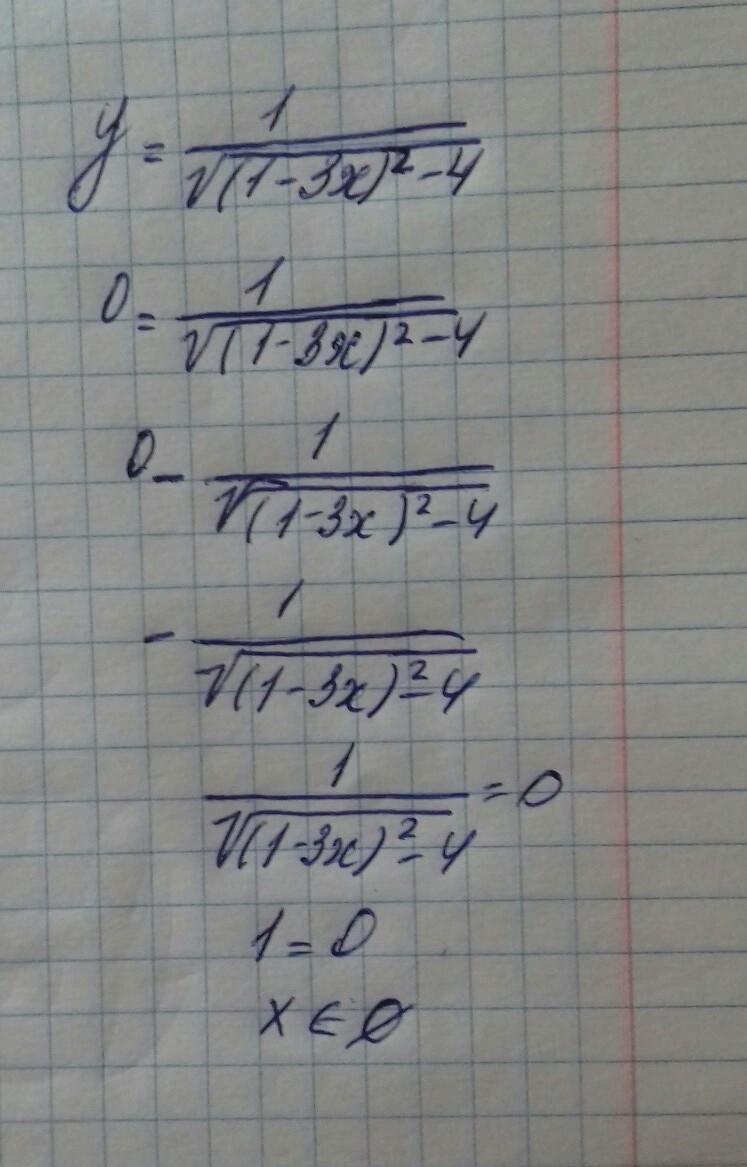 y = 1/√((1-3x)²-4)
0 = 1/√((1-3x)²-4)
0 - 1/√((1-3x)²-4)
- 1/√((1-3x)²-4)
1/√((1-3x)²-4) = 0
1 = 0
x ∈ ∅